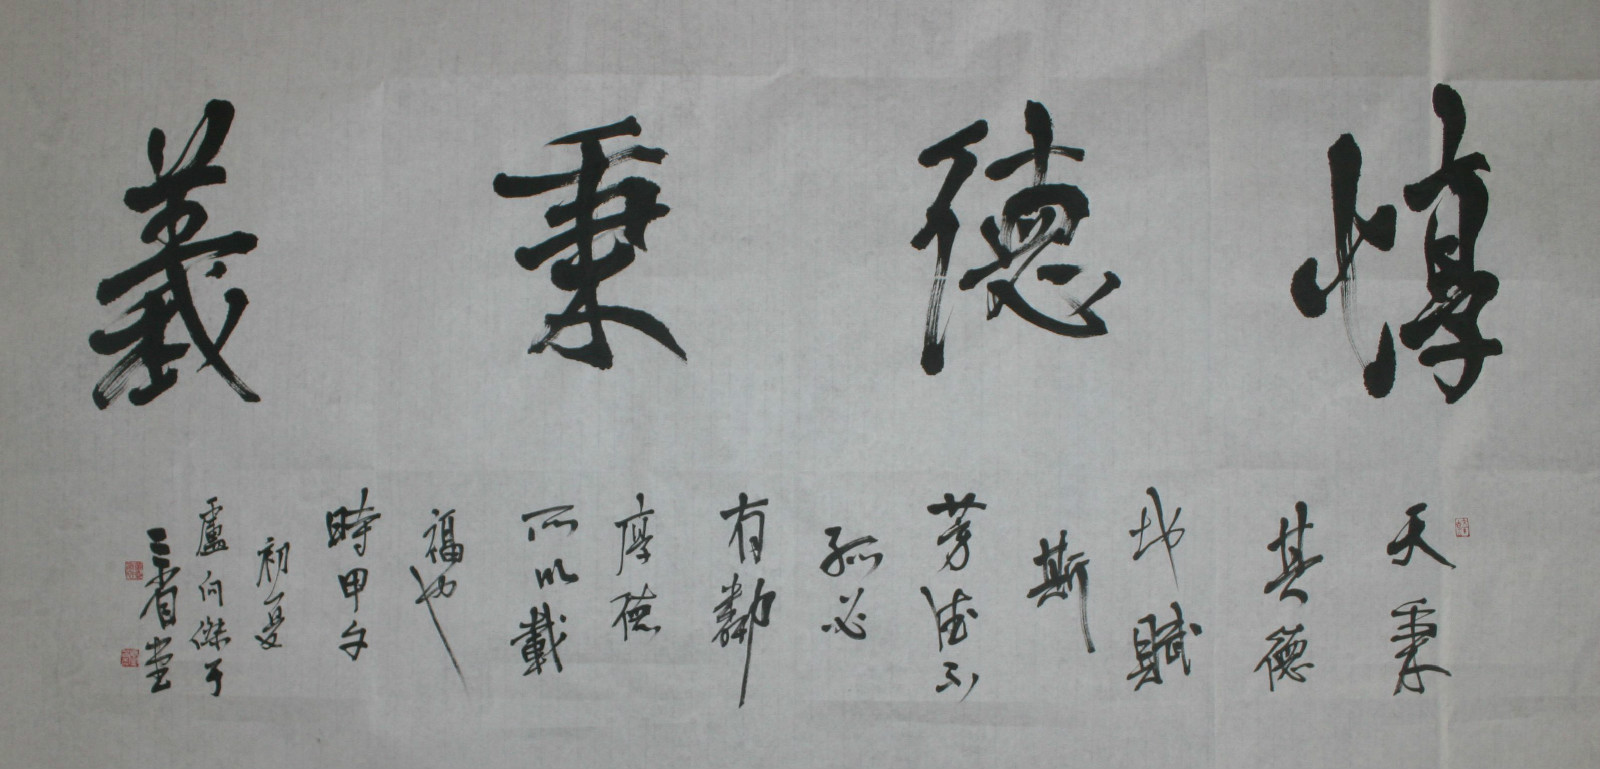 惇德秉義
天秉
其德
地賦
斯
芳德不
孤必
有鄰
厚德
所以載
福也
時甲午
初夏
盧向傑于
三省堂